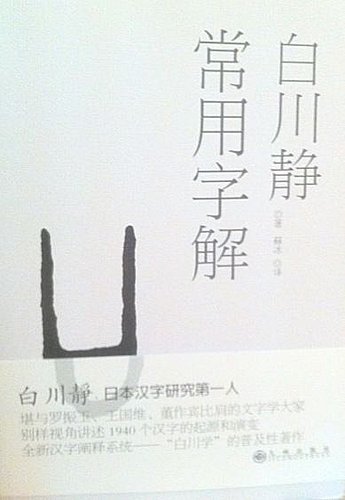 白川静
◎著 蘇冰 ◎译
常用字解
白川静 日本汉字研究第一人
堪与罗振玉、王国维、董作宾比肩的文字学大家
别样视角讲述1940个汉字的起源和演变
全新汉字阐释系统——“白川学”的普及性著作
九州出版社